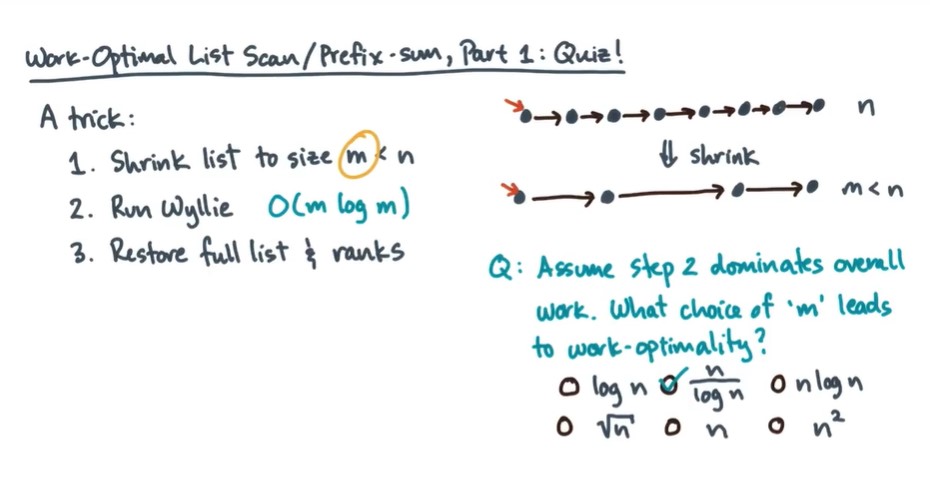 Work-Optimal List Scan/Prefix-sum, Part 1: Quiz!
A trick:
1. Shrink list to size m < n
2. Run Wyllie O(m log m)
3. Restore full list & ranks
n
⇓ shrink
m < n
Q: Assume step 2 dominates overall
work. What choice of 'm' leads
to work-optimality?
○ log n ✓ n/log n ○ n log n
○ √n ○ n ○ n²